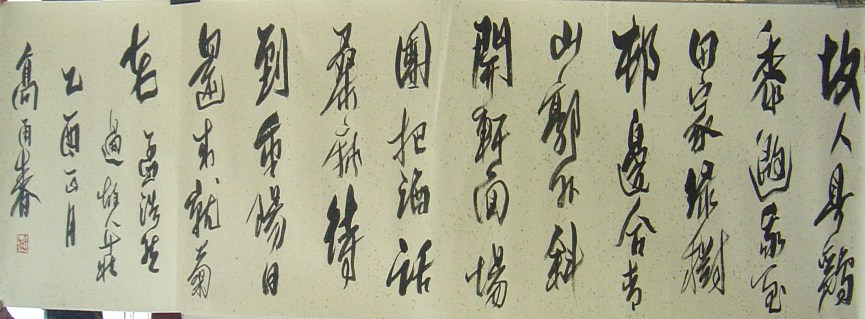 故人具鷄
黍邀我至
田家緑樹
邨邊合青
山郭外斜
開軒面場
圃把酒話
桑麻待
到重陽日
還來就菊
花 孟浩然
過故人莊
乙酉正月
高雨春